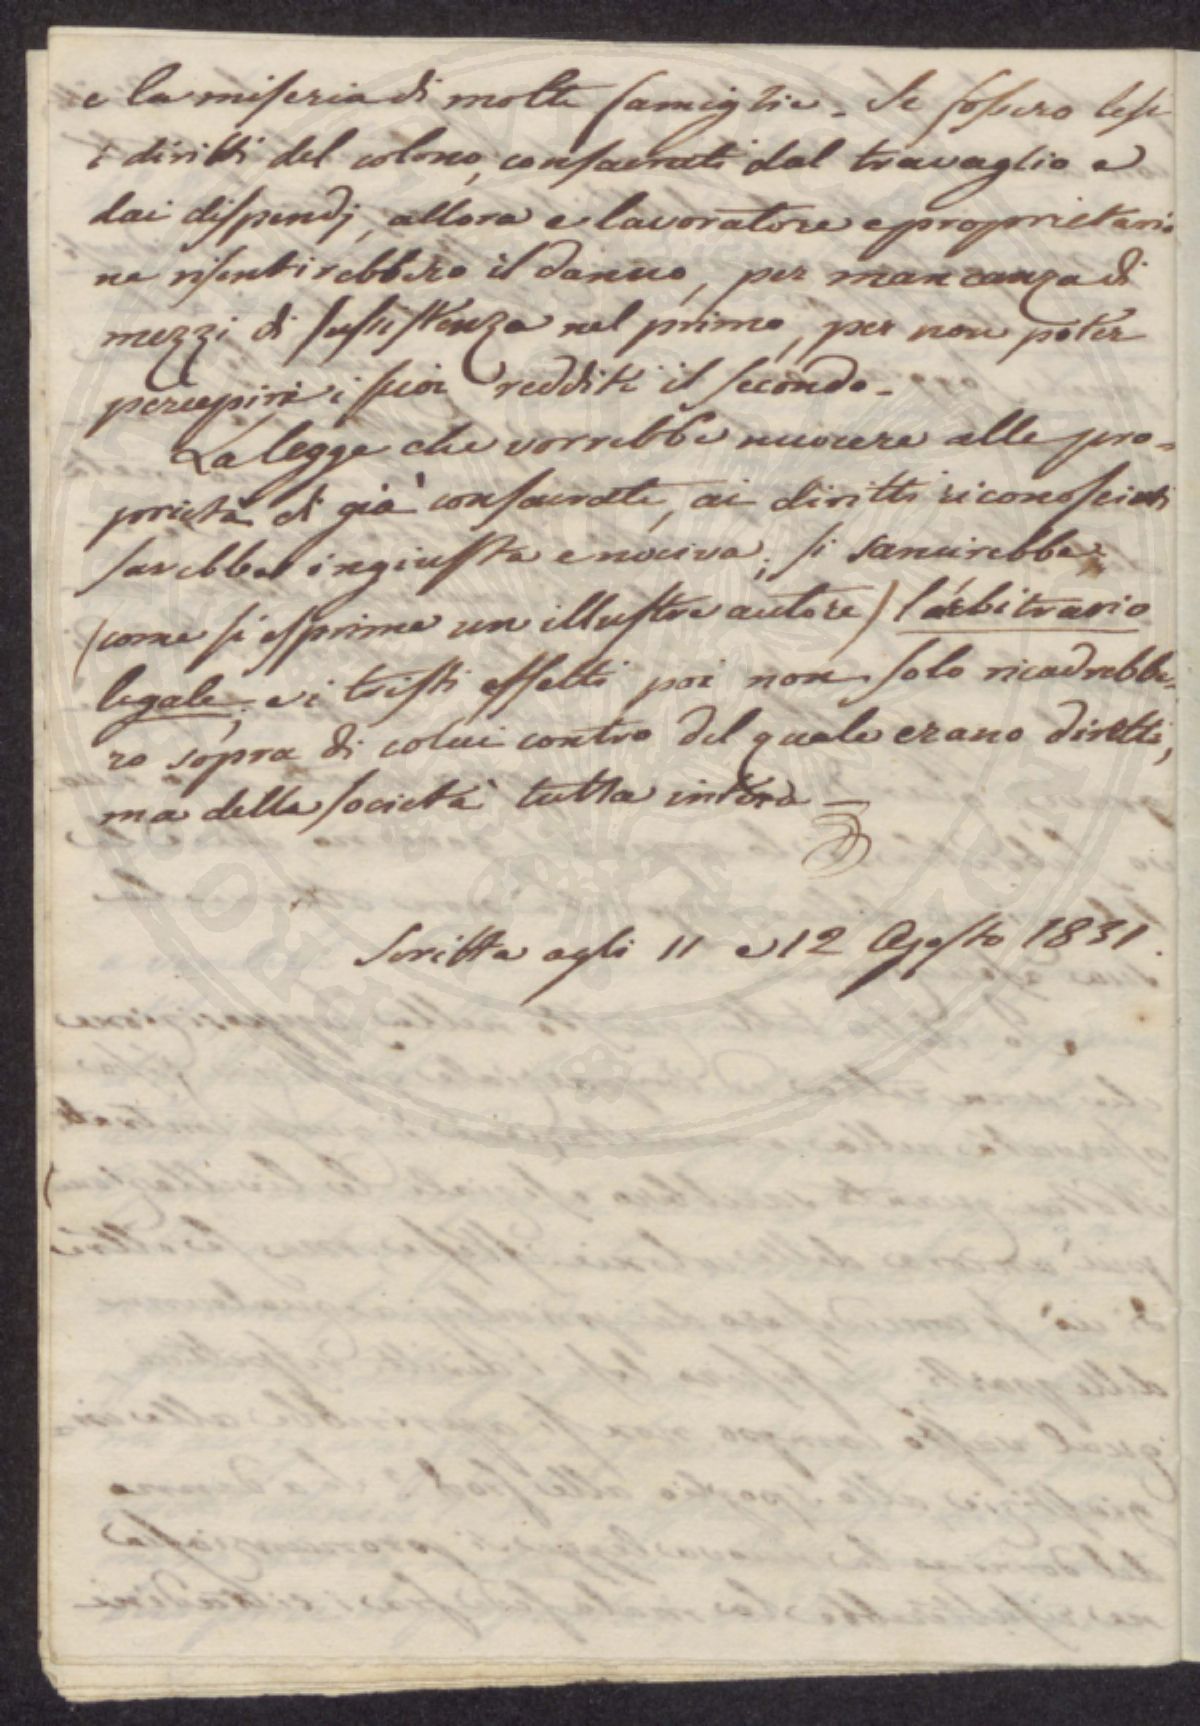 e la miseria di molte famiglie. Se fossero lesi
i diritti del colono, consacrati dal travaglio e
dai dispendj, allora e lavoratore e proprietario
ne risentirebbero il danno, per mancanza di
mezzi di sussistenza nel primo, per non poter
percepire i suoi redditi il secondo.
La legge che vorrebbe nuocere alle pro-
prietà di già consacrate, ai diritti riconosciuti
sarebbe ingiusta e nociva; si sancirebbe
(come si esprime un illustre autore) l'arbitrario
legale; e i tristi effetti poi non solo ricadrebbe-
ro sopra di colui contro del quale erano diretti,
ma della società tutta intera
Scritta agli 11 e 12 Agosto 1831.